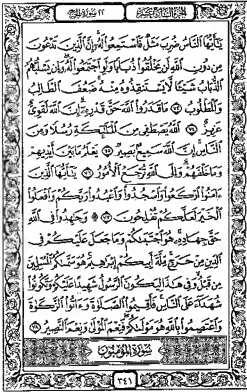 الجزء السابع عشر ٢٢ سورة الحج
يَٰٓأَيُّهَا ٱلنَّاسُ ضُرِبَ مَثَلٌ فَٱسْتَمِعُوا۟ لَهُۥٓ إِنَّ ٱلَّذِينَ تَدْعُونَ
مِن دُونِ ٱللَّهِ لَن يَخْلُقُوا۟ ذُبَابًا وَلَوِ ٱجْتَمَعُوا۟ لَهُۥ وَإِن يَسْلُبْهُمُ
ٱلذُّبَابُ شَيْـًٔا لَّا يَسْتَنقِذُوهُ مِنْهُ ضَعُفَ ٱلطَّالِبُ
وَٱلْمَطْلُوبُ ٧٣ مَا قَدَرُوا۟ ٱللَّهَ حَقَّ قَدْرِهِۦٓ إِنَّ ٱللَّهَ لَقَوِىٌّ
عَزِيزٌ ٧٤ ٱللَّهُ يَصْطَفِى مِنَ ٱلْمَلَٰٓئِكَةِ رُسُلًا وَمِنَ
ٱلنَّاسِ إِنَّ ٱللَّهَ سَمِيعٌۢ بَصِيرٌ ٧٥ يَعْلَمُ مَا بَيْنَ أَيْدِيهِمْ
وَمَا خَلْفَهُمْ وَإِلَى ٱللَّهِ تُرْجَعُ ٱلْأُمُورُ ٧٦ يَٰٓأَيُّهَا ٱلَّذِينَ
ءَامَنُوا۟ ٱرْكَعُوا۟ وَٱسْجُدُوا۟ وَٱعْبُدُوا۟ رَبَّكُمْ وَٱفْعَلُوا۟
ٱلْخَيْرَ لَعَلَّكُمْ تُفْلِحُونَ ٧٧ وَجَٰهِدُوا۟ فِى ٱللَّهِ
حَقَّ جِهَادِهِۦ هُوَ ٱجْتَبَىٰكُمْ وَمَا جَعَلَ عَلَيْكُمْ فِى
ٱلدِّينِ مِنْ حَرَجٍ مِّلَّةَ أَبِيكُمْ إِبْرَٰهِيمَ هُوَ سَمَّىٰكُمُ ٱلْمُسْلِمِينَ
مِن قَبْلُ وَفِى هَٰذَا لِيَكُونَ ٱلرَّسُولُ شَهِيدًا عَلَيْكُمْ وَتَكُونُوا۟
شُهَدَآءَ عَلَى ٱلنَّاسِ فَأَقِيمُوا۟ ٱلصَّلَوٰةَ وَءَاتُوا۟ ٱلزَّكَوٰةَ
وَٱعْتَصِمُوا۟ بِٱللَّهِ هُوَ مَوْلَىٰكُمْ فَنِعْمَ ٱلْمَوْلَىٰ وَنِعْمَ ٱلنَّصِيرُ ٧٨
سورة المؤمنون
٣٤١